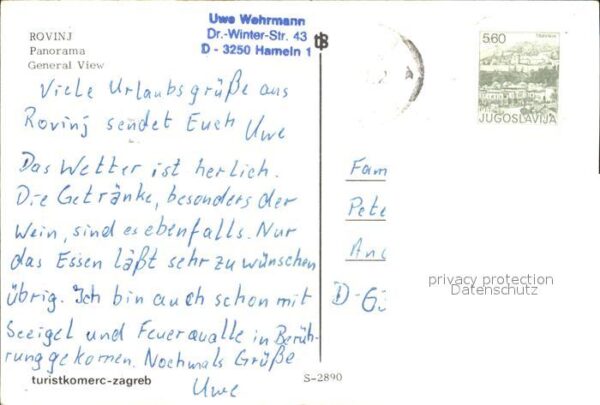 ROVINJ
Panorama
General View
Uwe Wehrmann
Dr.-Winter-Str. 43
D - 3250 Hameln 1
Viele Urlaubsgrüße aus
Rovinj sendet Euch Uwe
Das Wetter ist herlich.
Die Getränke, besonders der
Wein, sind es ebenfalls. Nur
das Essen läßt sehr zu wünschen
übrig. Ich bin auch schon mit
Seeigel und Feuerqualle in Berüh-
rung gekomen. Nochmals Grüße
Uwe
turistkomerc-zagreb
S-2890
5.60
JUGOSLAVIJA
Fam
Pete
An
D-63
privacy protection
Datenschutz